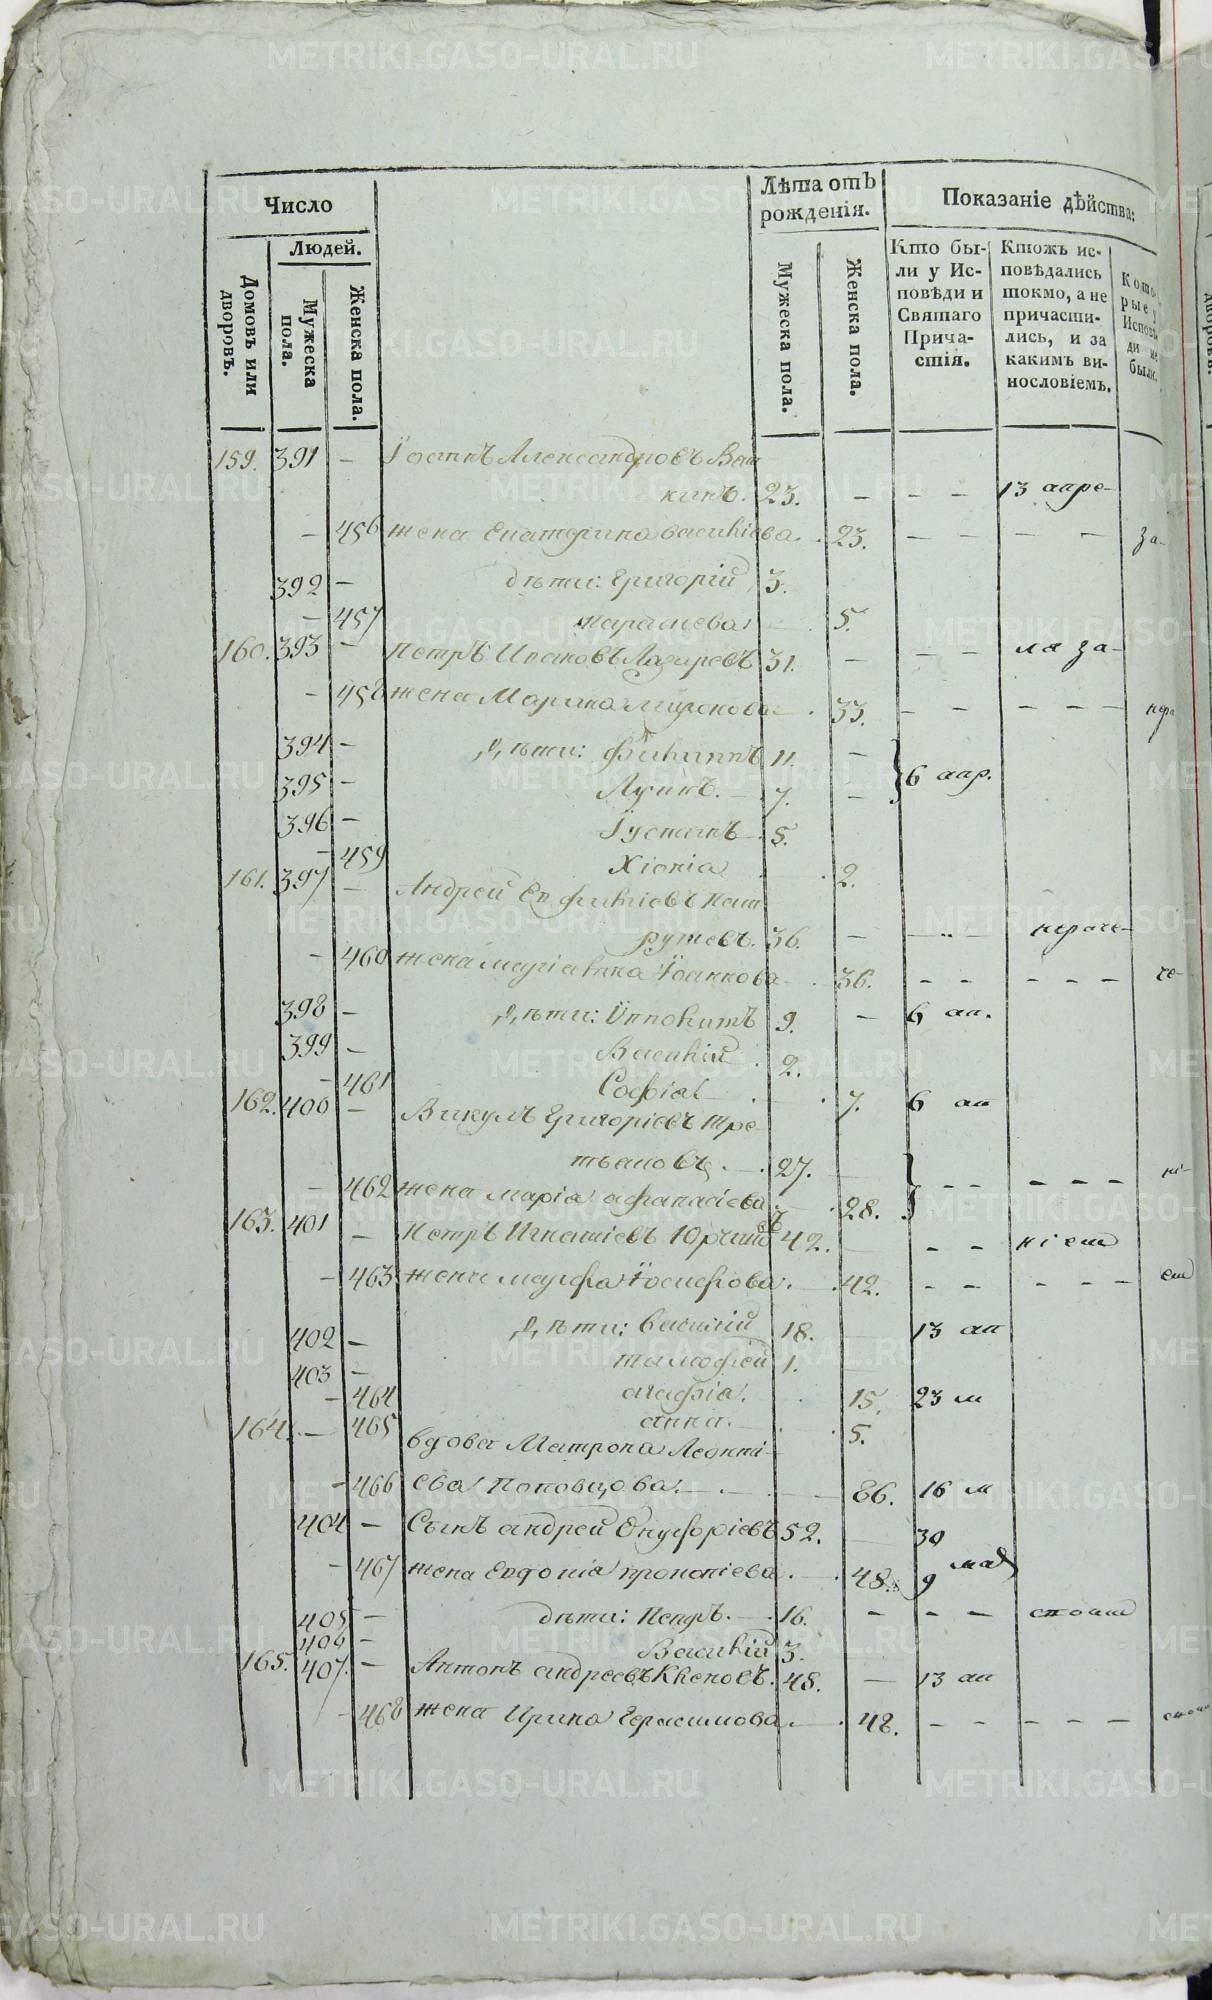 Число
Людей.
Домовъ или дворовъ.
Мужеска пола.
Женска пола.
Лѣта отъ рожденія.
Мужеска пола.
Женска пола.
Показаніе дѣйства:
Кто бы-
ли у Ис-
повѣди и
Святаго
Прича-
стія.
Ктожъ ис-
повѣдались
токмо, а не
причасти-
лись, и за
какимъ ви-
нословіемъ.
Кото-
рые у
Исповѣ
ди не
были.
159. 391 — Александровъ
кинъ. 23. — — — 13 апре-
— 456 жена Екатерина василіева 23. — — — — за-
392 — дѣти: Григорій 3.
— 457 5.
160. 393 — Петръ Ивановъ Лазаревъ 31. — — — за-
— 458 жена Марина миронова 33. — — — — —
394 — дѣти: Филиппъ 11. — 6 апр.
395 — 7. —
396 — Іустинъ 5.
— 459 Хіонія 2.
161. 397 — Андрей
36. — — — нераче-
— 460 жена Іоаннова 36. — — — — —
398 — дѣти: Ипполитъ 9. — 6 ап.
399 — Василій 2.
— 461 Софія 7. 6 ап
162. 400 — Викулъ Григоріевъ Тре
тьяковъ 27. — — — — —
— 462 жена марія афанасіева 28.
163. 401 — Петръ Игнатіевъ 42. — — ніем
— 463 жена марфа Іосифова 42. — — — — —
402 — дѣти: василій 18. 13 ап
403 — тимофей 1.
— 464 агафія. 15. 23 м
164. — 465 анна. 5.
вдова Матрона Леонті-
— 466 ева Поповцова 86. 16 м
404 — Сынъ андрей Онуфріевъ 52. 30
— 467 жена Евдокія прокопіева 48. 9 мая
405 — дѣти: Петръ. 16. — — —
406 — Василій 3.
165. 407. — Антонъ андреевъ Кленовъ. 48. — 13 ап
— 468 жена Ирина Герасимова 48. — — — — —
METRIKI.GASO-URAL.RU